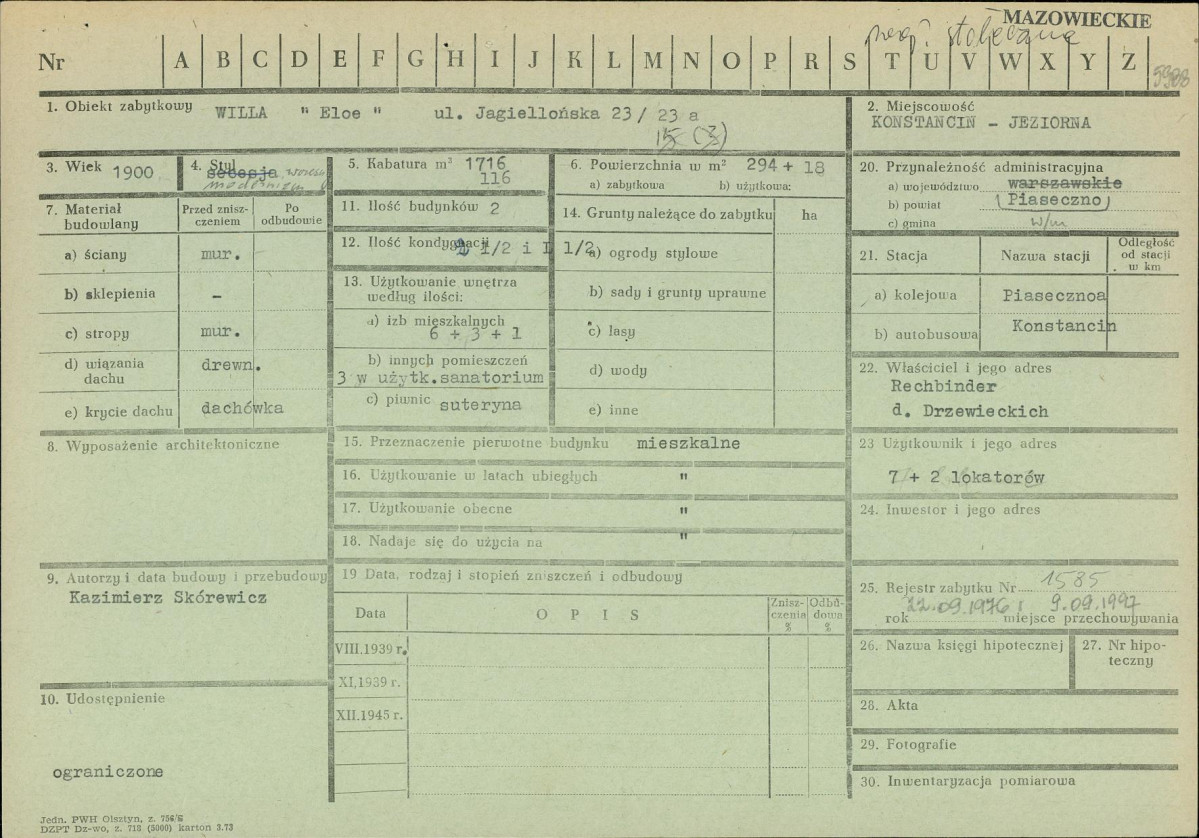 MAZOWIECKIE
Nr A B C D E F G H I J K L M N O P R S T U V W X Y Z
5988
1. Obiekt zabytkowy WILLA " Eloe " ul. Jagiellońska 23 / 23 a
15 (3)
2. Miejscowość
KONSTANCIN - JEZIORNA
3. Wiek 1900
4. Styl
secesja
modernizm
5. Kabatura m³ 1716
116
6. Powierzchnia w m² 294 + 18
a) zabytkowa b) użytkowa:
7. Materiał budowlany
Przed zniszczeniem
Po odbudowie
a) ściany mur.
b) sklepienia -
c) stropy mur.
d) wiązania dachu drewn.
e) krycie dachu dachówka
8. Wyposażenie architektoniczne
9. Autorzy i data budowy i przebudowy
Kazimierz Skórewicz
10. Udostępnienie
ograniczone
11. Ilość budynków 2
12. Ilość kondygnacji 1/2 i I 1/2
13. Użytkowanie wnętrza
według ilości:
a) izb mieszkalnych
6 + 3 + 1
b) innych pomieszczeń
3 w użytk.sanatorium
c) piwnic suteryna
14. Grunty należące do zabytku ha
a) ogrody stylowe
b) sady i grunty uprawne
c) lasy
d) wody
e) inne
15. Przeznaczenie pierwotne budynku mieszkalne
16. Użytkowanie w latach ubiegłych "
17. Użytkowanie obecne "
18. Nadaje się do użycia na "
19 Data, rodzaj i stopień zniszczeń i odbudowy
Data O P I S Zniszczenia % Odbudowa %
VIII.1939 r.
XI,1939 r.
XII.1945 r.
20. Przynależność administracyjna
a) województwo warszawskie
b) powiat (Piaseczno)
c) gmina w/m
21. Stacja Nazwa stacji Odległość od stacji w km
a) kolejowa Piasecznoa
b) autobusowa Konstancin
22. Właściciel i jego adres
Rechbinder
d. Drzewieckich
23 Użytkownik i jego adres
7 + 2 lokatorów
24. Inwestor i jego adres
25. Rejestr zabytku Nr 1585
22.09.1976 i 9.09.1997
rok miejsce przechowywania
26. Nazwa księgi hipotecznej
27. Nr hipoteczny
28. Akta
29. Fotografie
30. Inwentaryzacja pomiarowa
Jedn. PWH Olsztyn, z. 756/6
DZPT Dz-wo, z. 713 (5000) karton 3.73